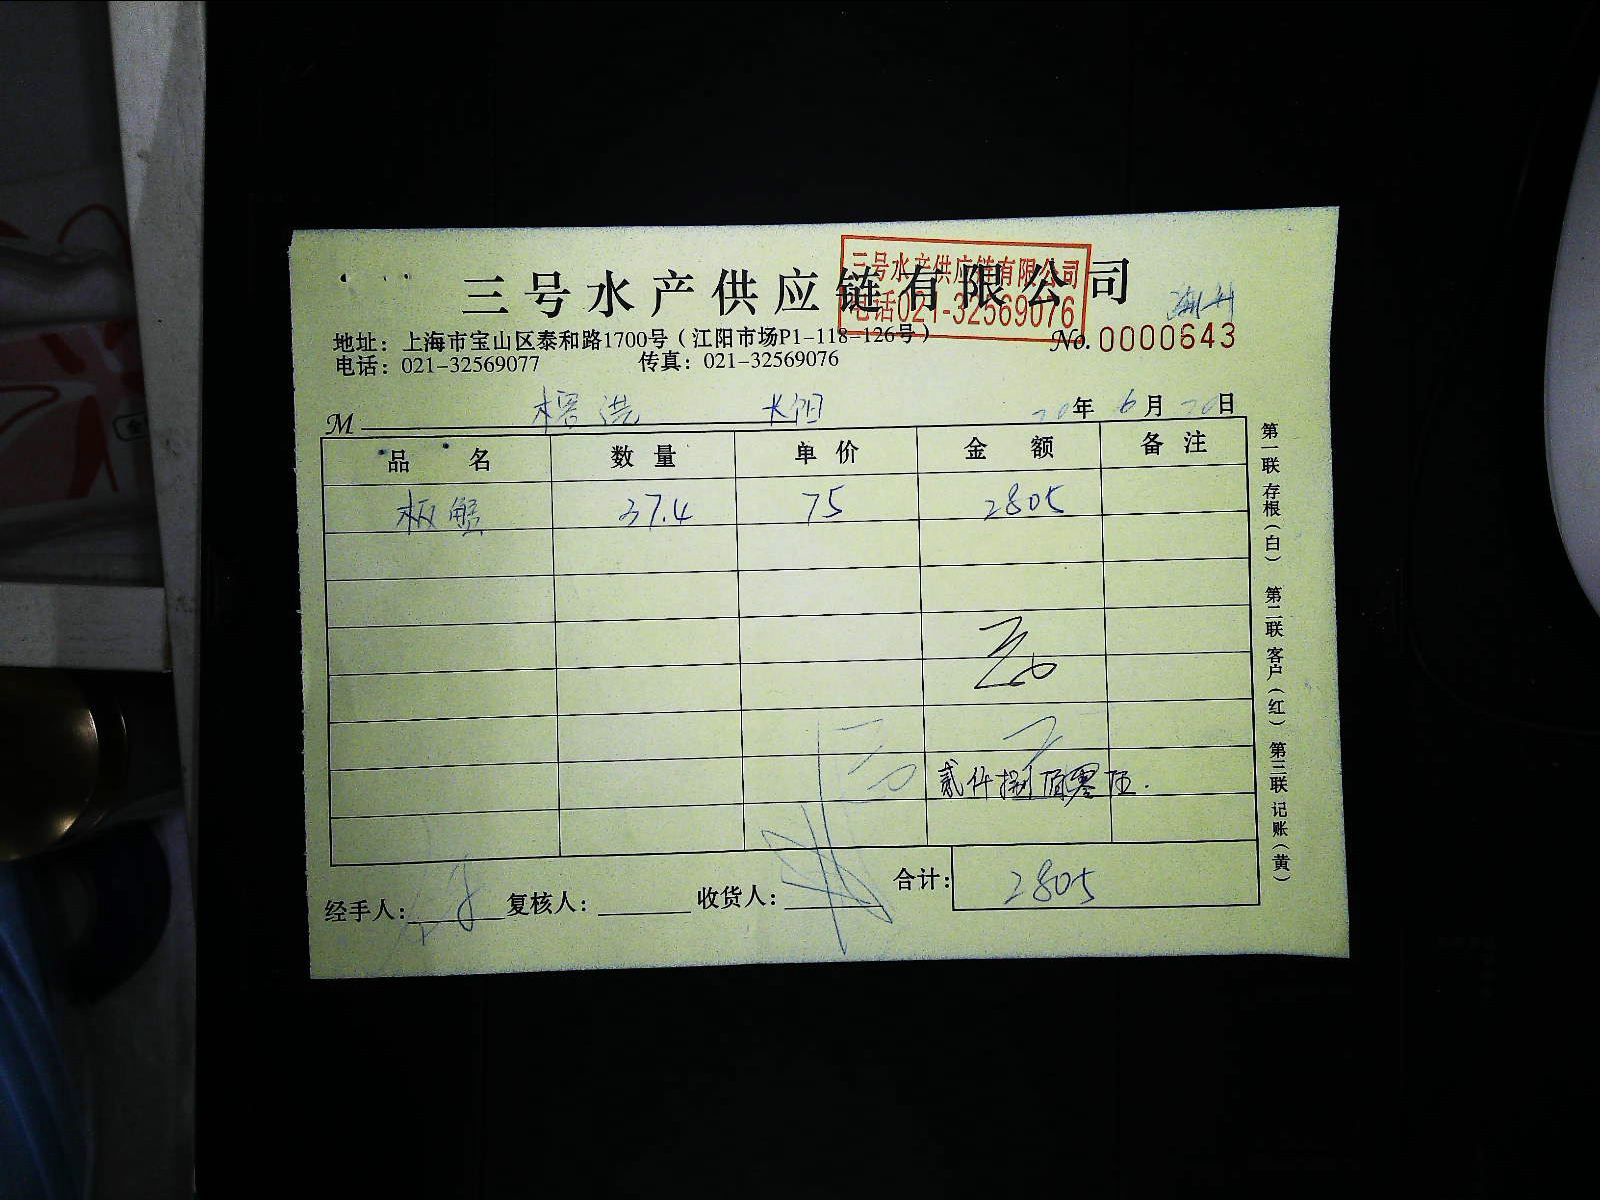 三号水产供应链有限公司
三号水产供应链有限公司
电话021-32569076
海鲜
地址：上海市宝山区泰和路1700号（江阳市场P1-118-126号）
No. 0000643
电话：021-32569077 传真：021-32569076
M 榕港 长阳 20年 6月 20日
品 名 数 量 单 价 金 额 备 注
板蟹 37.4 75 2805
贰仟捌佰零伍.
合计： 2805
经手人： 复核人： 收货人：
第一联 存根（白） 第二联 客户（红） 第三联 记账（黄）